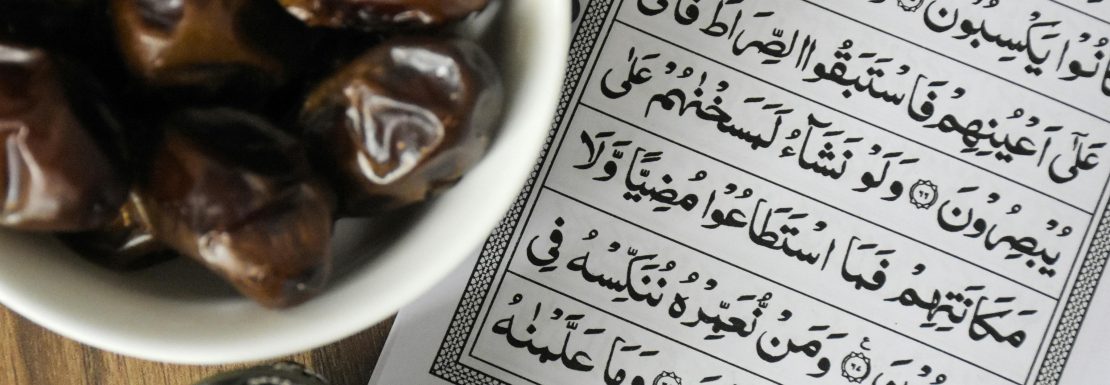 كَانُوْا يَكْسِبُوْنَ
عَلٰٓى اَعْيُنِهِمْ فَاسْتَبَقُوا الصِّرَاطَ فَاَنّٰى
يُبْصِرُوْنَ ۝٦٦ وَلَوْ نَشَآءُ لَمَسَخْنٰهُمْ عَلٰى
مَكَانَتِهِمْ فَمَا اسْتَطَاعُوْا مُضِيًّا وَّلَا
وَمَنْ نُّعَمِّرْهُ نُنَكِّسْهُ فِى
وَمَا عَلَّمْنٰهُ